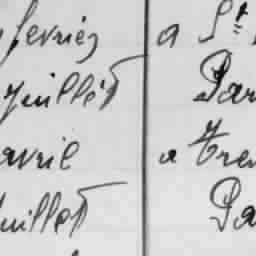 fevrier a St
Juillet Par
avril a Tre
uillet Pa